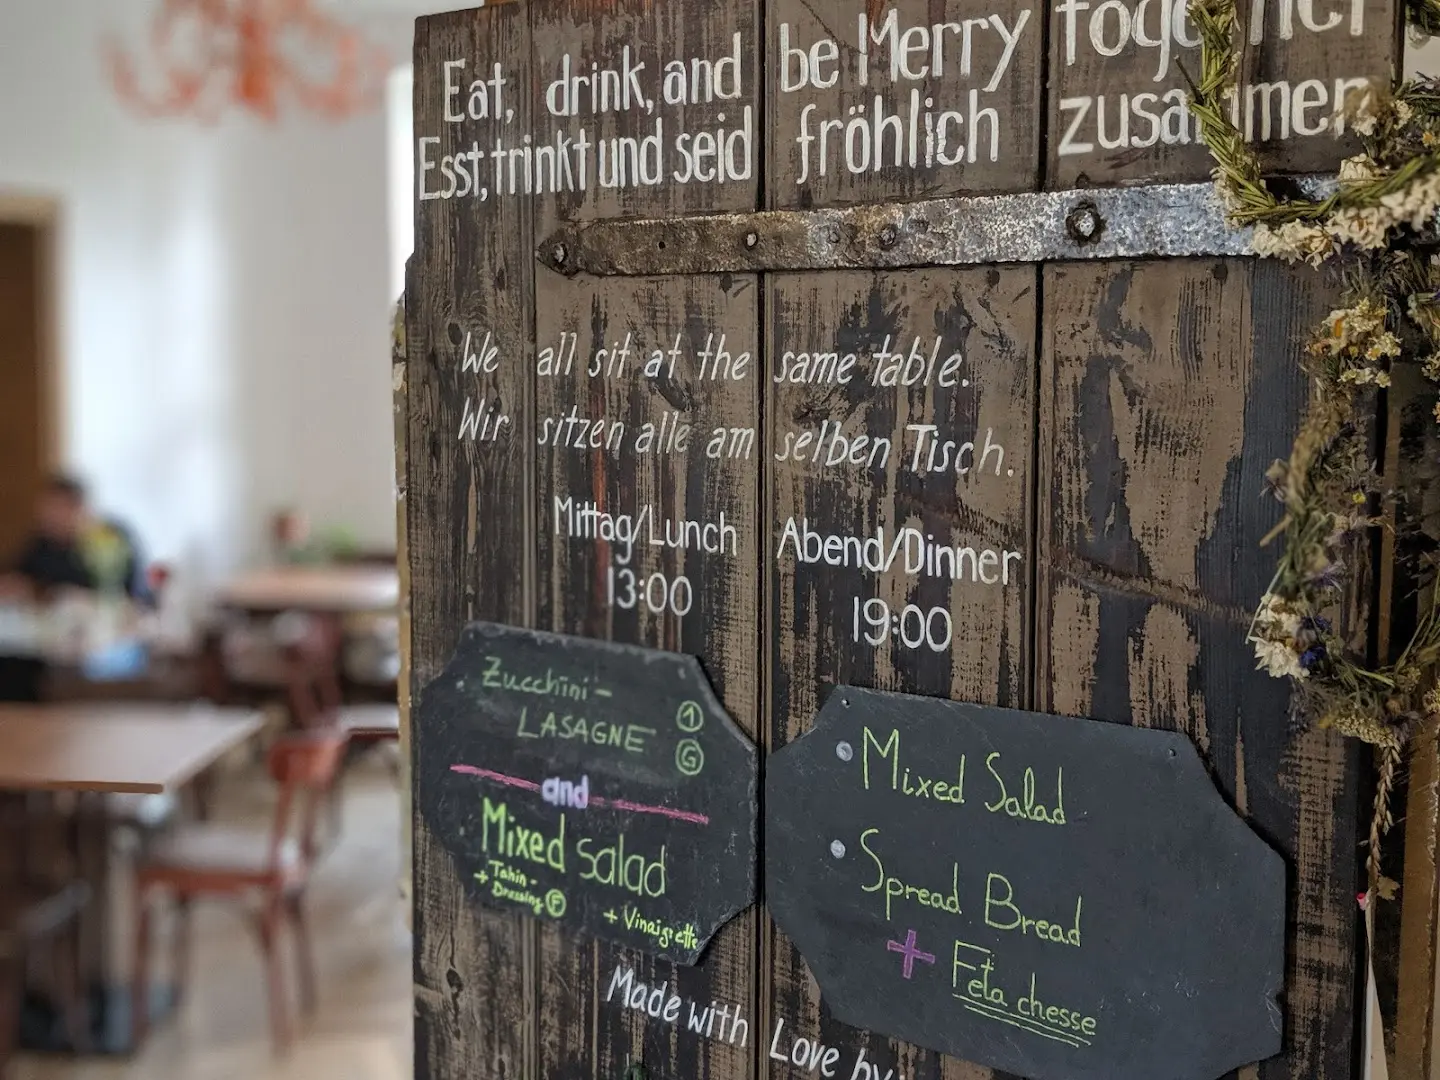 Eat, drink, and be Merry together
Esst, trinkt und seid fröhlich zusammen
We all sit at the same table.
Wir sitzen alle am selben Tisch.
Mittag/Lunch
13:00
Abend/Dinner
19:00
Zucchini-
LASAGNE
1
G
and
Mixed salad
+ Tahin-
Dressing F
+ Vinaigrette
Mixed Salad
Spread Bread
+ Feta chesse
Made with Love by